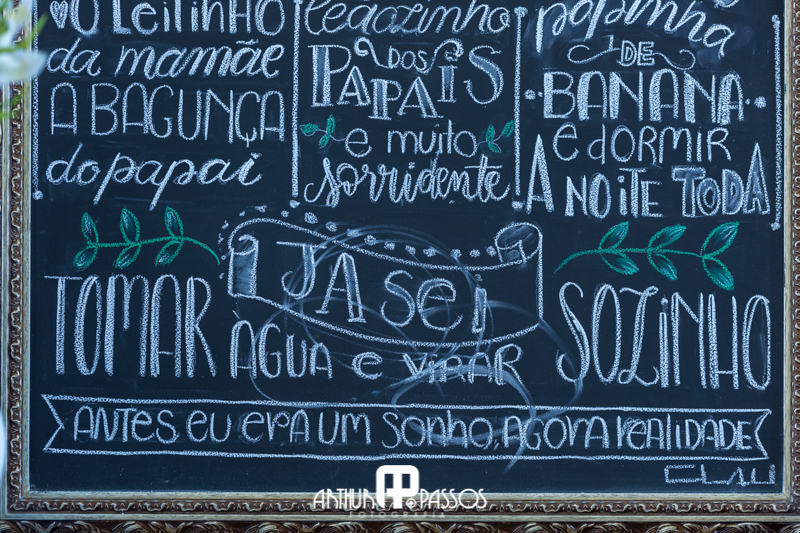 O LEITINHO
da mamãe
A BAGUNÇA
do papai
Leãozinho
DOS
PAPAIS
e muito
sorridente
papinha
DE
BANANA
e dORMIR
A NOiTE TODA
JA Sei
TOMAR AGUA e VIRAR SOZINHO
ANTES EU ERA UM SONHO, AGORA REALIDADE
CLAU
ARTHUR PASSOS
FOTOGRAFIA